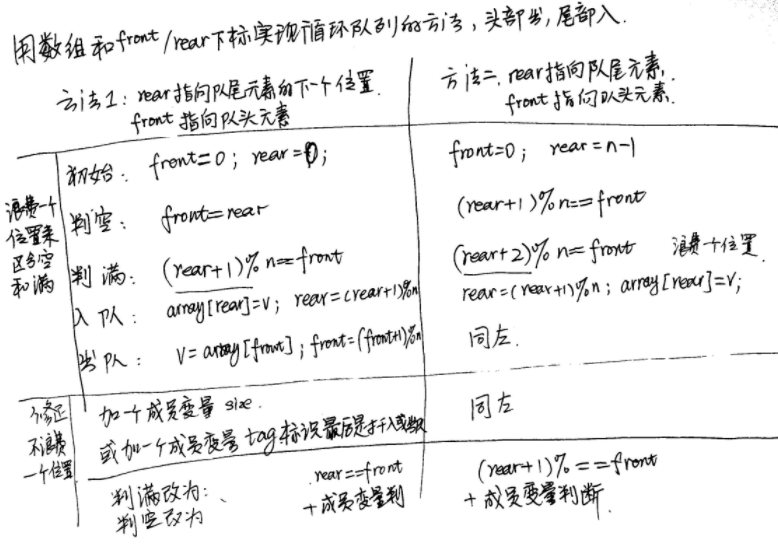 用数组和front/rear下标实现循环队列的方法，头部出，尾部入.
方法1：rear指向队尾元素的下一个位置.
front 指向队头元素
方法二、rear指向队尾元素,
front 指向队头元素.
浪费一个
位置来
区分空
和满
初始： front=0； rear=0；
front=0； rear=n-1
判空： front=rear
(rear+1)%n==front
判满： (rear+1)%n==front
(rear+2)%n==front 浪费一个位置.
入队： array[rear]=v； rear=(rear+1)%n
rear=(rear+1)%n；array[rear]=v；
出队： v=array[front]；front=(front+1)%n
同左.
修正
不浪费
一个位置
加一个成员变量 size.
或加一个成员变量tag标识最后是插入或
同左
判满改为：
判空改为
rear==front
+成员变量判
(rear+1)%==front
+成员变量判断.